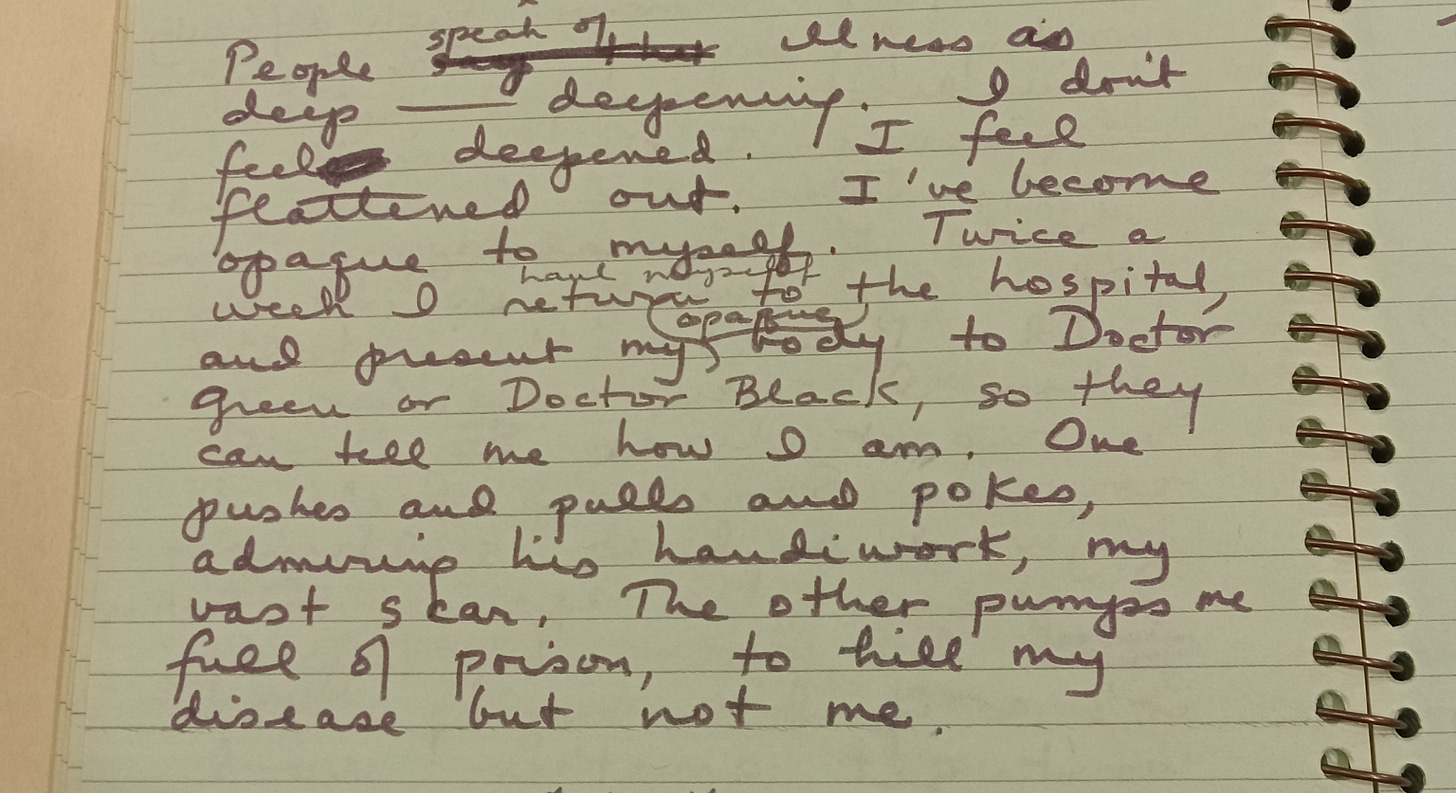 speak of
People say that illness as
deep — deepening. I don't
feel deepened. I feel
flattened out. I've become
opaque to myself. Twice a
haul myself
week I return to the hospital,
(opaque)
and present my body to Doctor
Green or Doctor Black, so they
can tell me how I am. One
pushes and pulls and pokes,
admiring his handiwork, my
vast scar. The other pumps me
full of poison, to kill my
disease but not me.